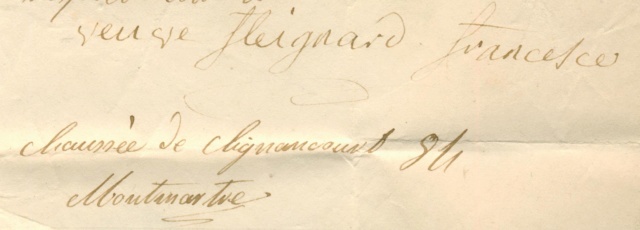 veuve Fleignard francesce
chaussée de Clignancourt 84
Montmartre